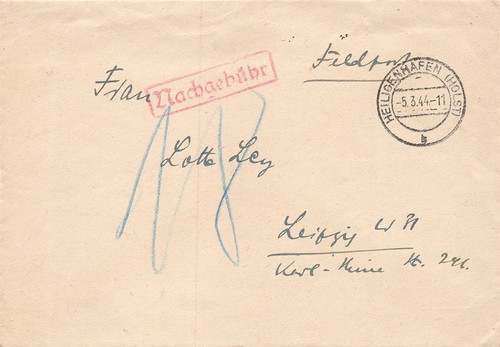 Feldpost
Frau
Nachgebühr
HEILIGENHAFEN (HOLST)
-5.3.44-11
b
Lotte Ley
Leipzig W 31
Karl-Heine St.